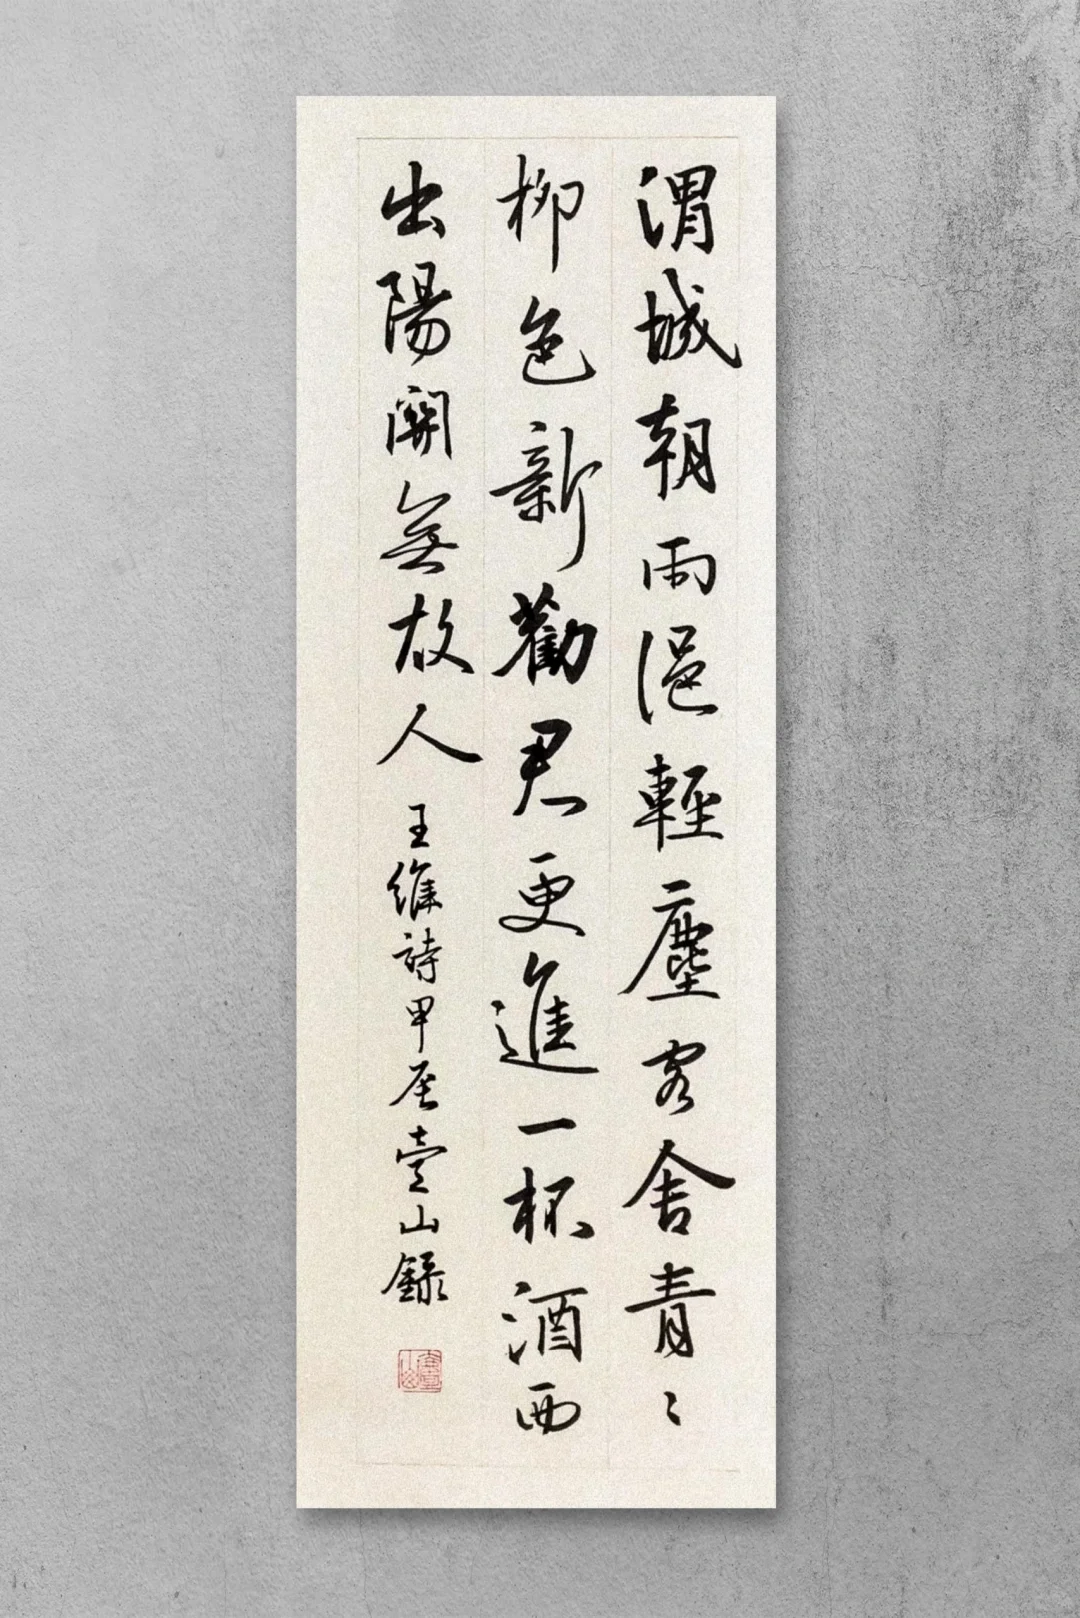 渭城朝雨浥輕塵客舍青〻
柳色新勸君更進一杯酒西
出陽關無故人 王維詩甲辰山錄